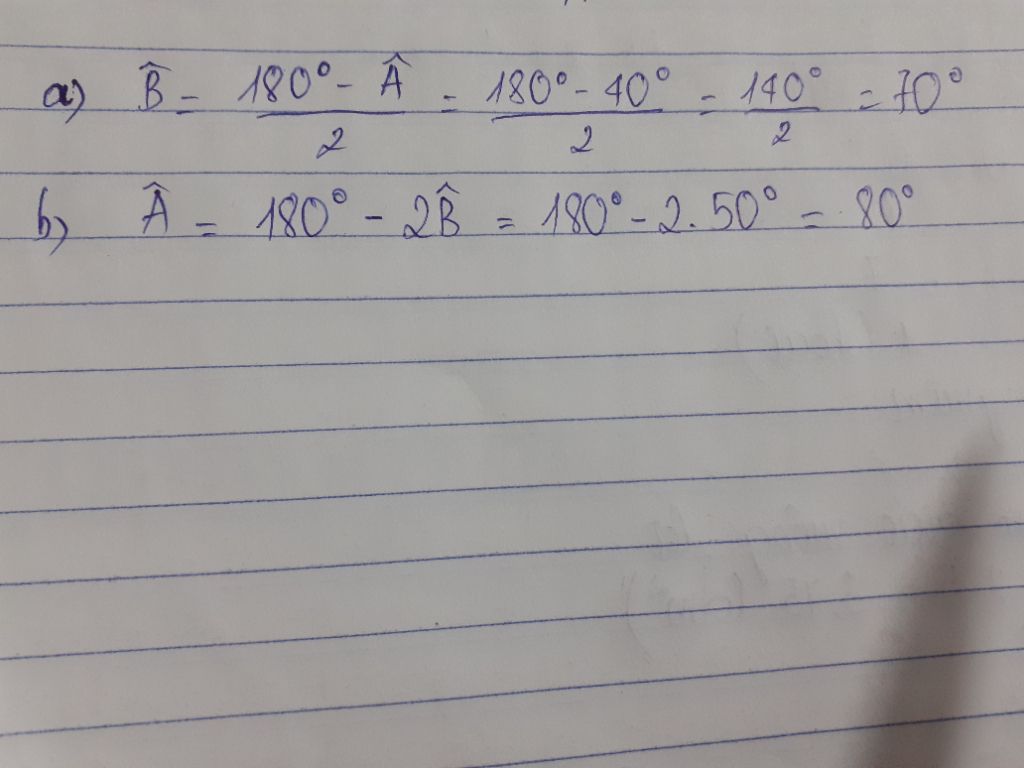 a) B̂ = (180° - Â)/2 = (180° - 40°)/2 = 140°/2 = 70°
b) Â = 180° - 2B̂ = 180° - 2.50° = 80°